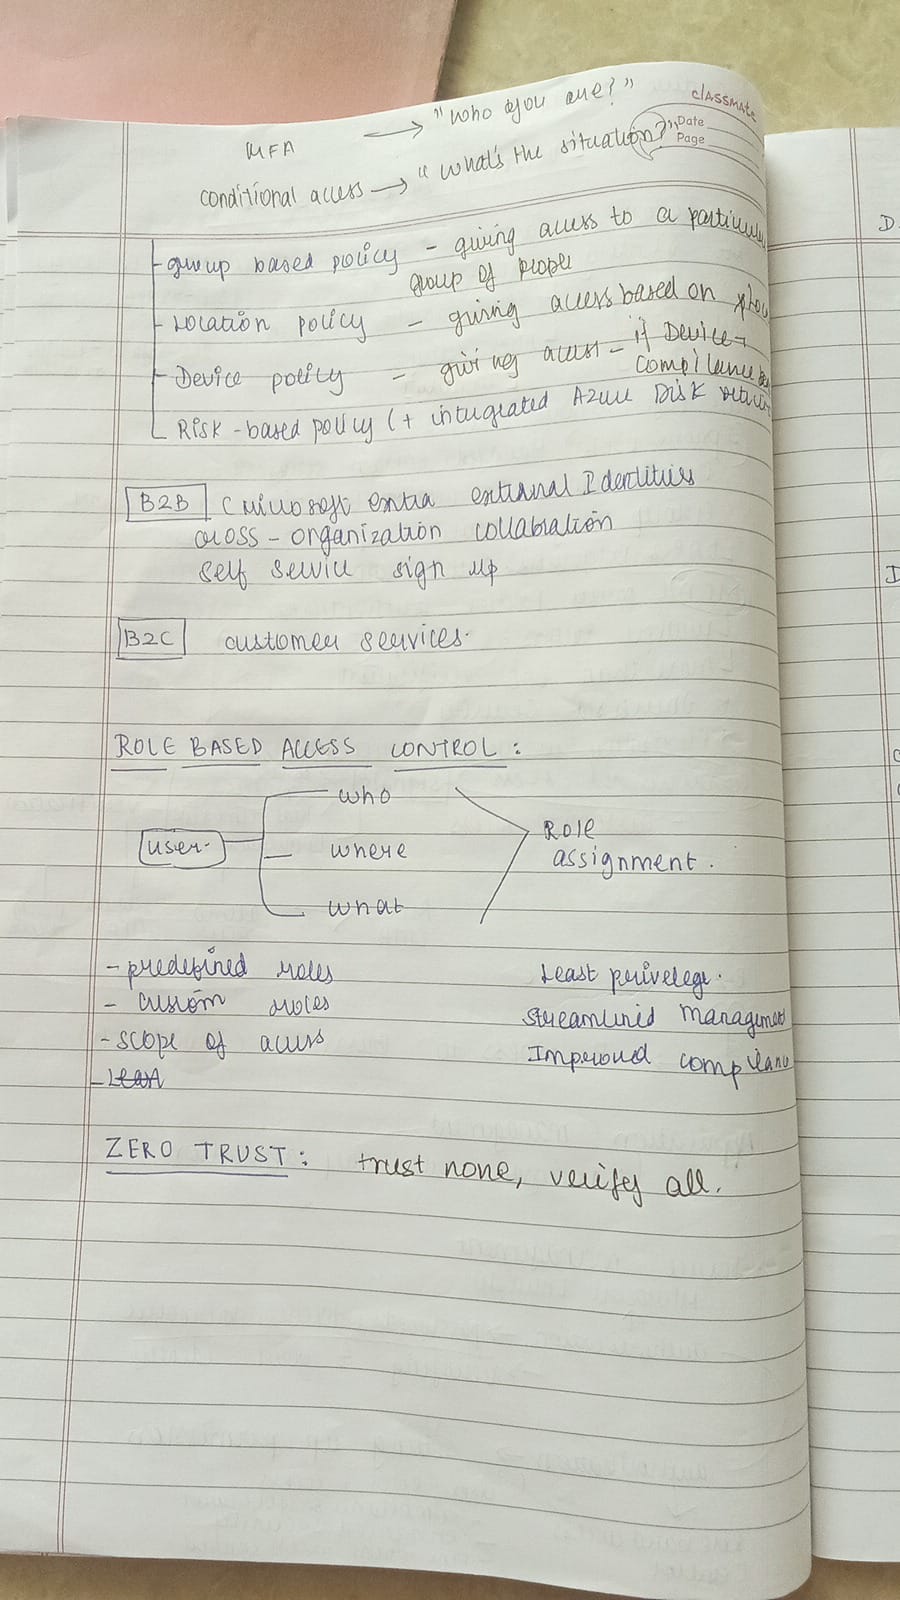 classmate
Date
Page
MFA → "who you are?"
conditional access → "what's the situation?"
- group based policy - giving access to a particular
group of people
- Location policy - giving access based on
- Device policy - giving access - if Device
compliance
Risk-based policy (+ integrated Azure Disk
B2B (Microsoft entra external Identities
cross-organization collabration
self service sign up
B2C customer services.
ROLE BASED ACCESS CONTROL:
who
user. where Role
assignment.
what
- predefined roles Least privelege.
- custom roles streamlined management
- scope of access Improved compliance
- Least
ZERO TRUST: trust none, verify all.